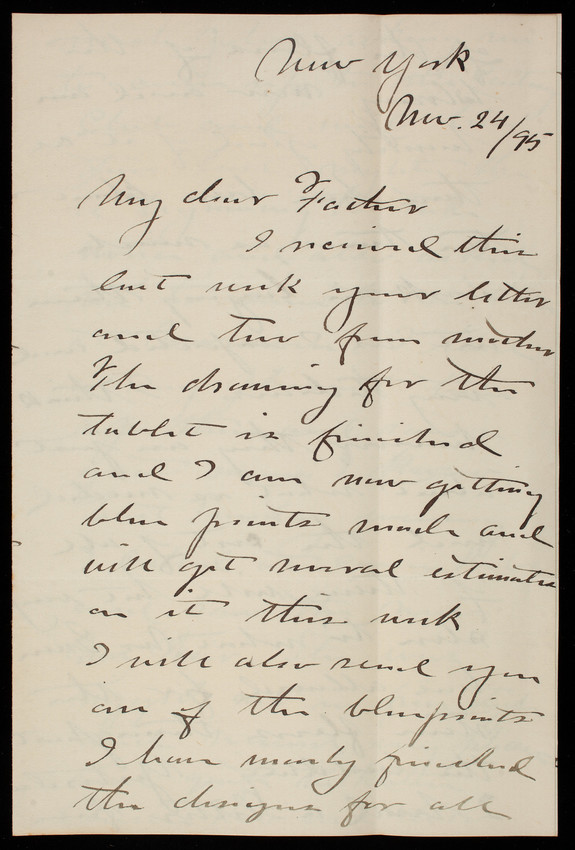 New York
Nov. 24/95
My dear Father
I received this
last week your letter
and two from mother
The drawing for the
tablet is finished
and I am now getting
blue prints made and
will get several estimates
on it this week
I will also send you
one of the blueprints
I have nearly finished
the designs for all